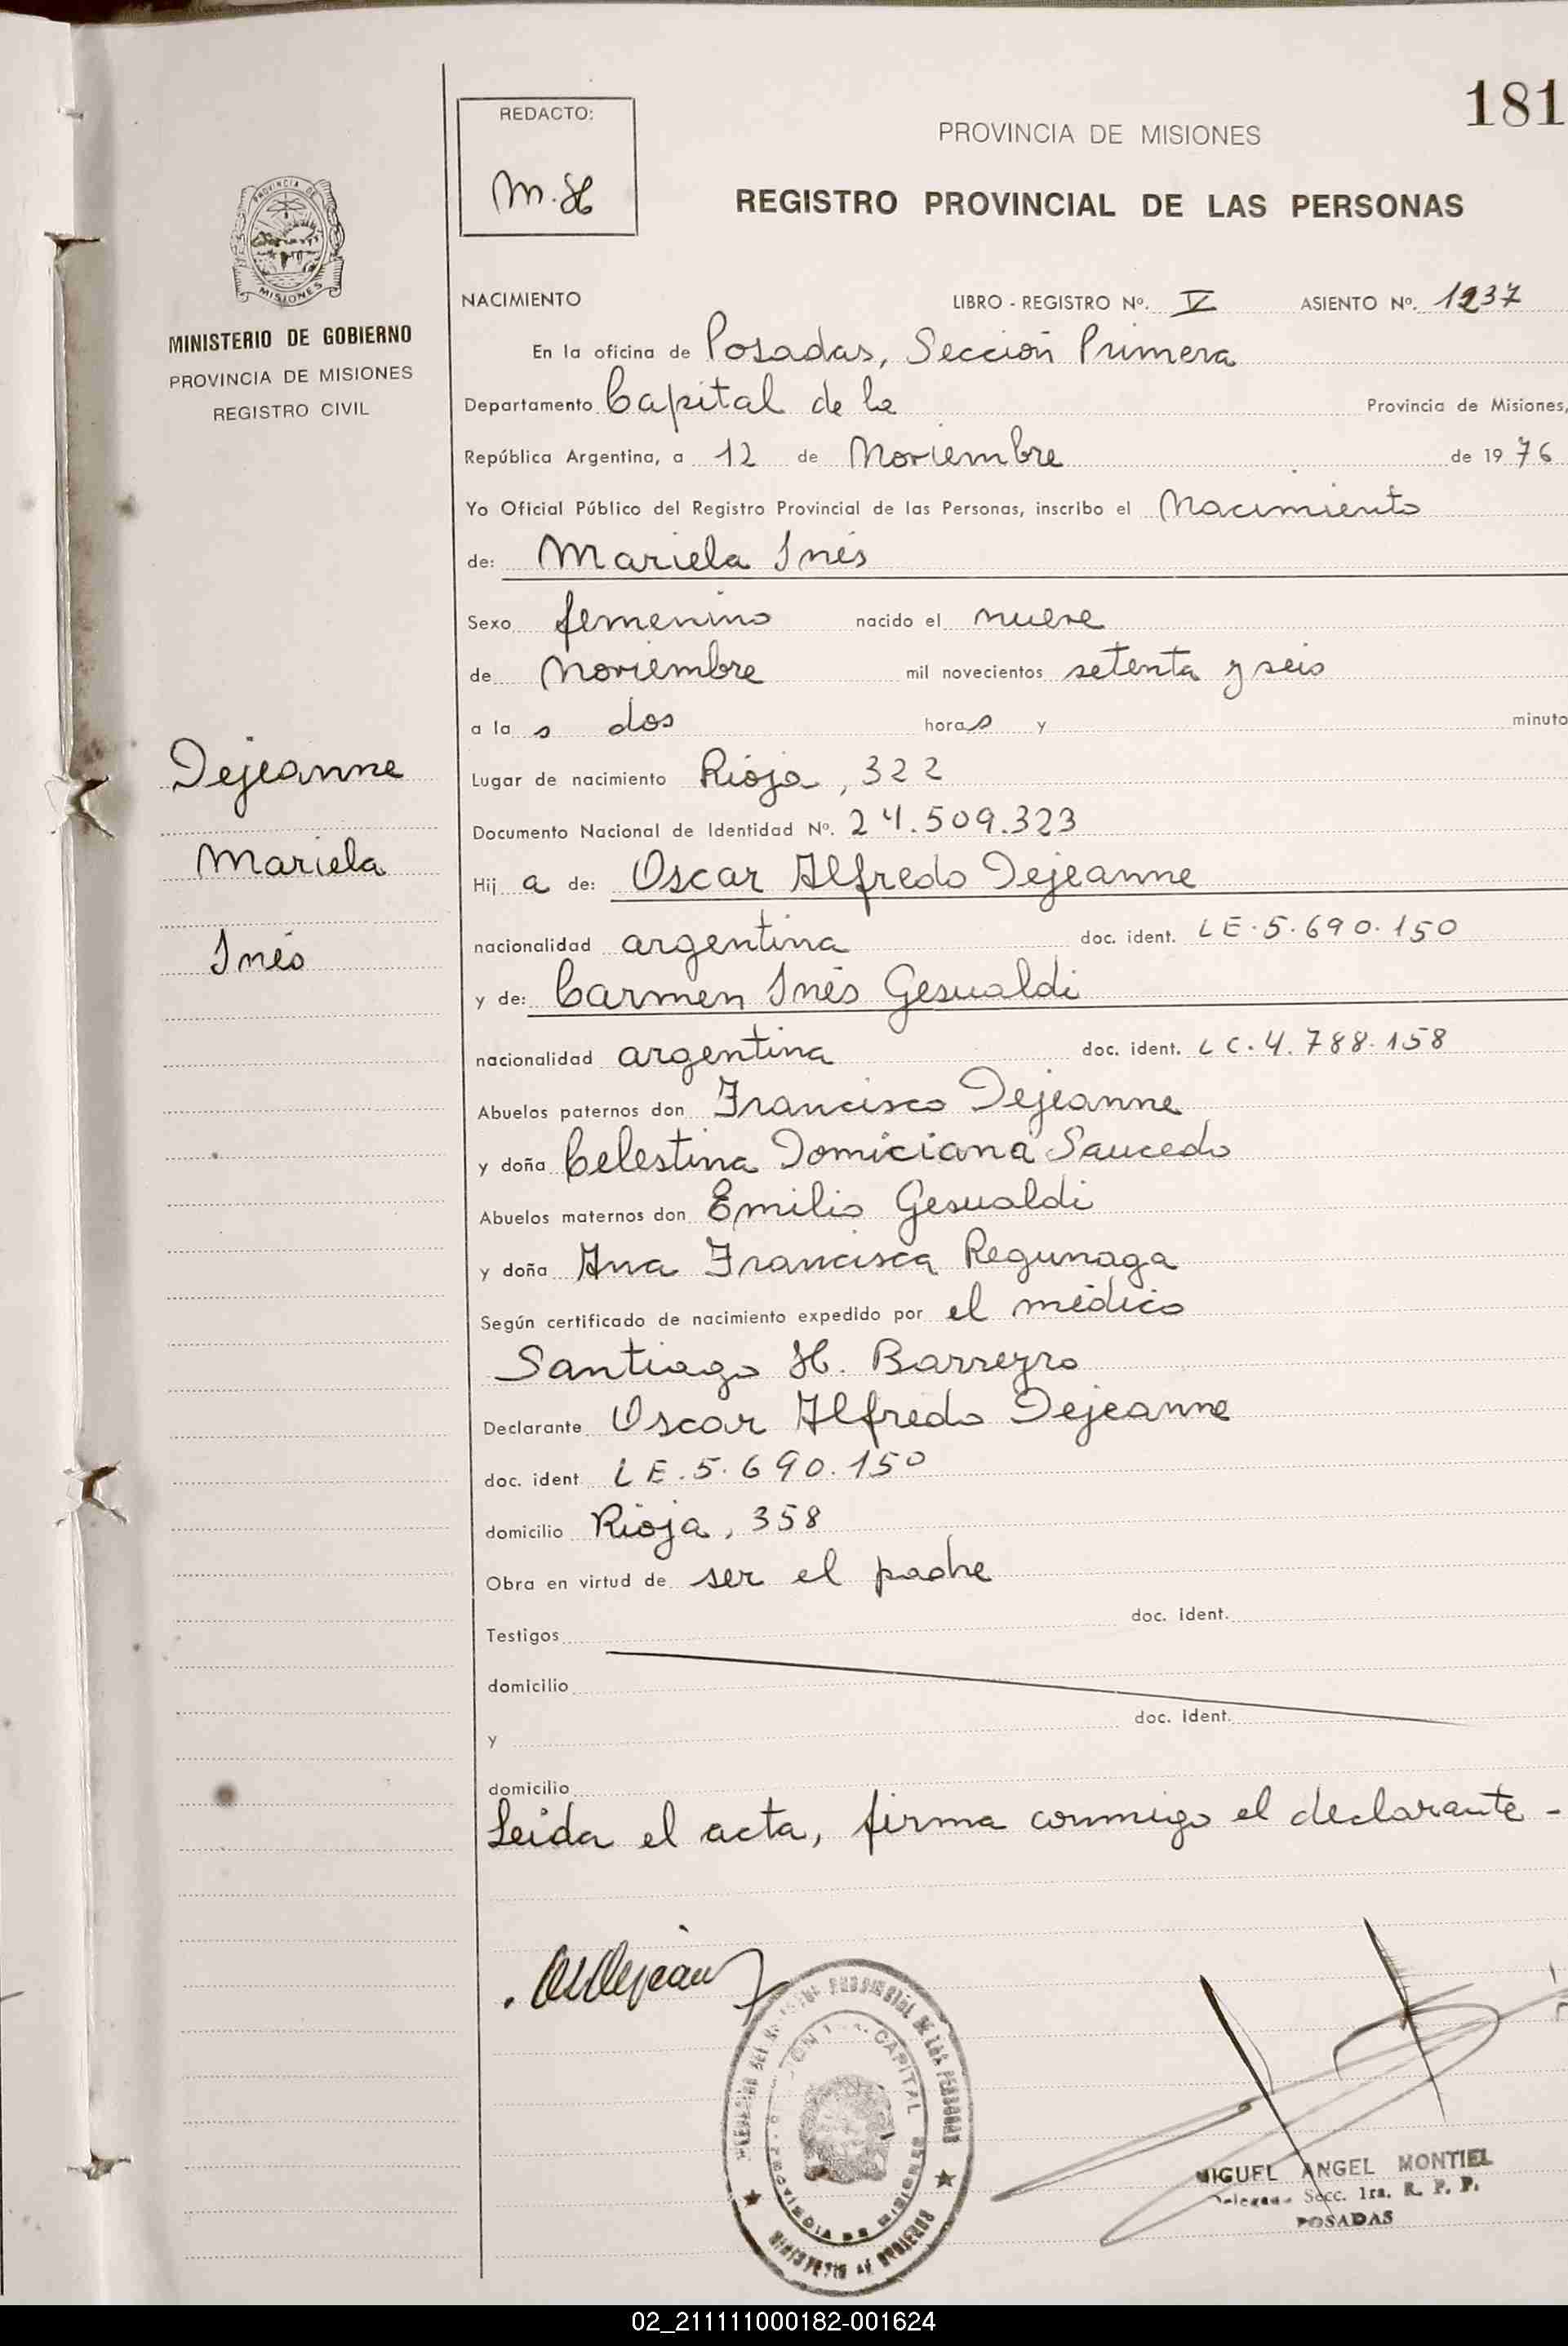 181
REDACTO:
M. H
PROVINCIA DE MISIONES
REGISTRO PROVINCIAL DE LAS PERSONAS
PROVINCIA DE
MISIONES
MINISTERIO DE GOBIERNO
PROVINCIA DE MISIONES
REGISTRO CIVIL
NACIMIENTO LIBRO - REGISTRO Nº. V ASIENTO Nº. 1237
En la oficina de Posadas, Sección Primera
Departamento Capital de la Provincia de Misiones,
República Argentina, a 12 de Noviembre de 1976
Yo Oficial Público del Registro Provincial de las Personas, inscribo el Nacimiento
de: Mariela Inés
Sexo femenino nacido el nueve
de Noviembre mil novecientos setenta y seis
a la s dos horas y minuto
Lugar de nacimiento Rioja, 322
Documento Nacional de Identidad Nº. 24.509.323
Hij a de: Oscar Alfredo Dejeanne
nacionalidad argentina doc. ident. LE.5.690.150
y de: Carmen Inés Gesualdi
nacionalidad argentina doc. ident. LC.4.788.158
Abuelos paternos don Francisco Dejeanne
y doña Celestina Domiciana Saucedo
Abuelos maternos don Emilio Gesualdi
y doña Ana Francisca Regunaga
Según certificado de nacimiento expedido por el médico
Santiago H. Barreyro
Declarante Oscar Alfredo Dejeanne
doc. ident LE.5.690.150
domicilio Rioja, 358
Obra en virtud de ser el padre
Testigos doc. ident.
domicilio
y doc. ident.
domicilio
Leida el acta, firma conmigo el declarante -
Dejeanne
Mariela
Inés
CAPITAL
PROVINCIA DE MISIONES
MINISTERIO DE GOBIERNO
MIGUEL ANGEL MONTIEL
Secc. 1ra. R. P. P.
POSADAS
02_211111000182-001624